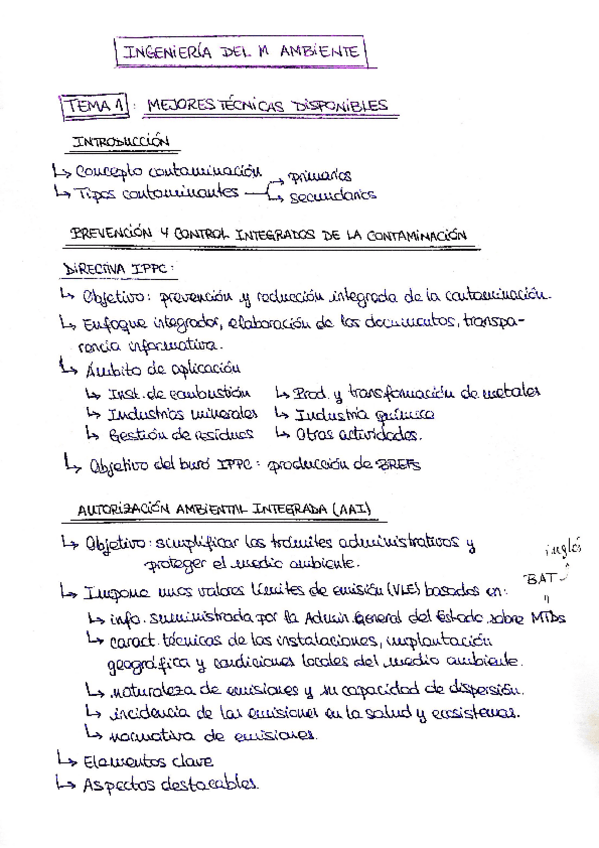 INGENIERÍA DEL M AMBIENTE
TEMA 1: MEJORES TÉCNICAS DISPONIBLES
INTRODUCCIÓN
↳ Concepto contaminación
↳ Tipos contaminantes → primarios
→ secundarios
PREVENCIÓN Y CONTROL INTEGRADOS DE LA CONTAMINACIÓN
DIRECTIVA IPPC:
↳ Objetivo: prevención y reducción integrada de la contaminación.
↳ Enfoque integrador, elaboración de los documentos, transpa-
rencia informativa.
↳ Ámbito de aplicación
↳ Inst. de combustión ↳ Prod. y transformación de metales
↳ Industrias minerales ↳ Industria química
↳ Gestión de residuos ↳ Otras actividades.
↳ Objetivo del buró IPPC: producción de BREFs
AUTORIZACIÓN AMBIENTAL INTEGRADA (AAI)
↳ Objetivo: simplificar los trámites administrativos y
proteger el medio ambiente.
inglés
BAT
↳ Impone unos valores límites de emisión (VLE) basados en:
↳ info. suministrada por la Admin. General del Estado sobre MTDs
↳ caract. técnicas de las instalaciones, implantación
geográfica y condiciones locales del medio ambiente.
↳ naturaleza de emisiones y su capacidad de dispersión.
↳ incidencia de las emisiones en la salud y ecosistemas.
↳ normativa de emisiones.
↳ Elementos clave
↳ Aspectos destacables.